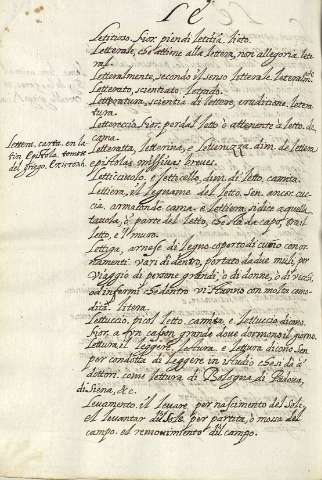 Le
Letitioso. fior. pien di letitia, lieto.
Letterale, che attiene alla lettera, non allegoria, lite
ral.
Letteralmente, secondo il senso letterale. literalm.te
Letterato, scientiato, letrado.
Letteratura, scientia di lettere, eruditione, litera
tura.
Letterecio fior. per dal letto ò attenente à letto. de
cama.
lettera, carta. en la
tin Epistola, tomato
del griego.
Letteretta, letterina, e letteruzza dim. de lettera
epistolas missivas breves.
Letticivolo, e letticello, dim. di letto, camita.
Lettiera, il legname del letto, Sen. ancor. cuc
cia. armazon de cama. e Lettiera si dice a quella
tavola, ò parte del letto, che stà da capo, trà il
letto, e il muro.
Lettiga, arnese di legno coperto di cuoio con or
namenti vari di dentro, portato da due muli, per
viaggio di persone grandi, ò di donne, ò di vechi,
od infermi che dentro vi stanno con molta como
dità. litera.
Lettuccio, picol letto, camita. e lettuccio dicono.
fior. a fin capoi, grande dove dormono il giorno.
Lettura, il leggere, letura. e lettura dicono Sen.
per condotta di leggere in istudio che si dà a'
dottori. come lettura di Bologna, di Padova,
di Siena, &c.
Levamento, il levare, per nascimento del Sole,
el levantar del Sol. e per partita, ò mossa del
campo. el removimiento del campo.